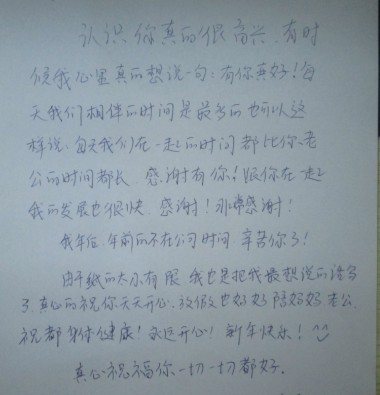 认识你真的很高兴.有时
候我心里真的想说一句:有你真好!每
天我们相伴的时间是最多的也可以这
样说.每天我们在一起的时间都比你老
公的时间都长 感谢有你!跟你在一起
我的发展也很快.感谢!非常感谢!
我年后.年前的不在公司时间 辛苦你了!
由于纸的太小有限 我也是把我最想说的语写
了.真心的祝你天天开心.放假也好好陪妈妈 老公.
祝都身体健康!永远开心!新年快乐!^_^
真心祝福你一切一切都好.